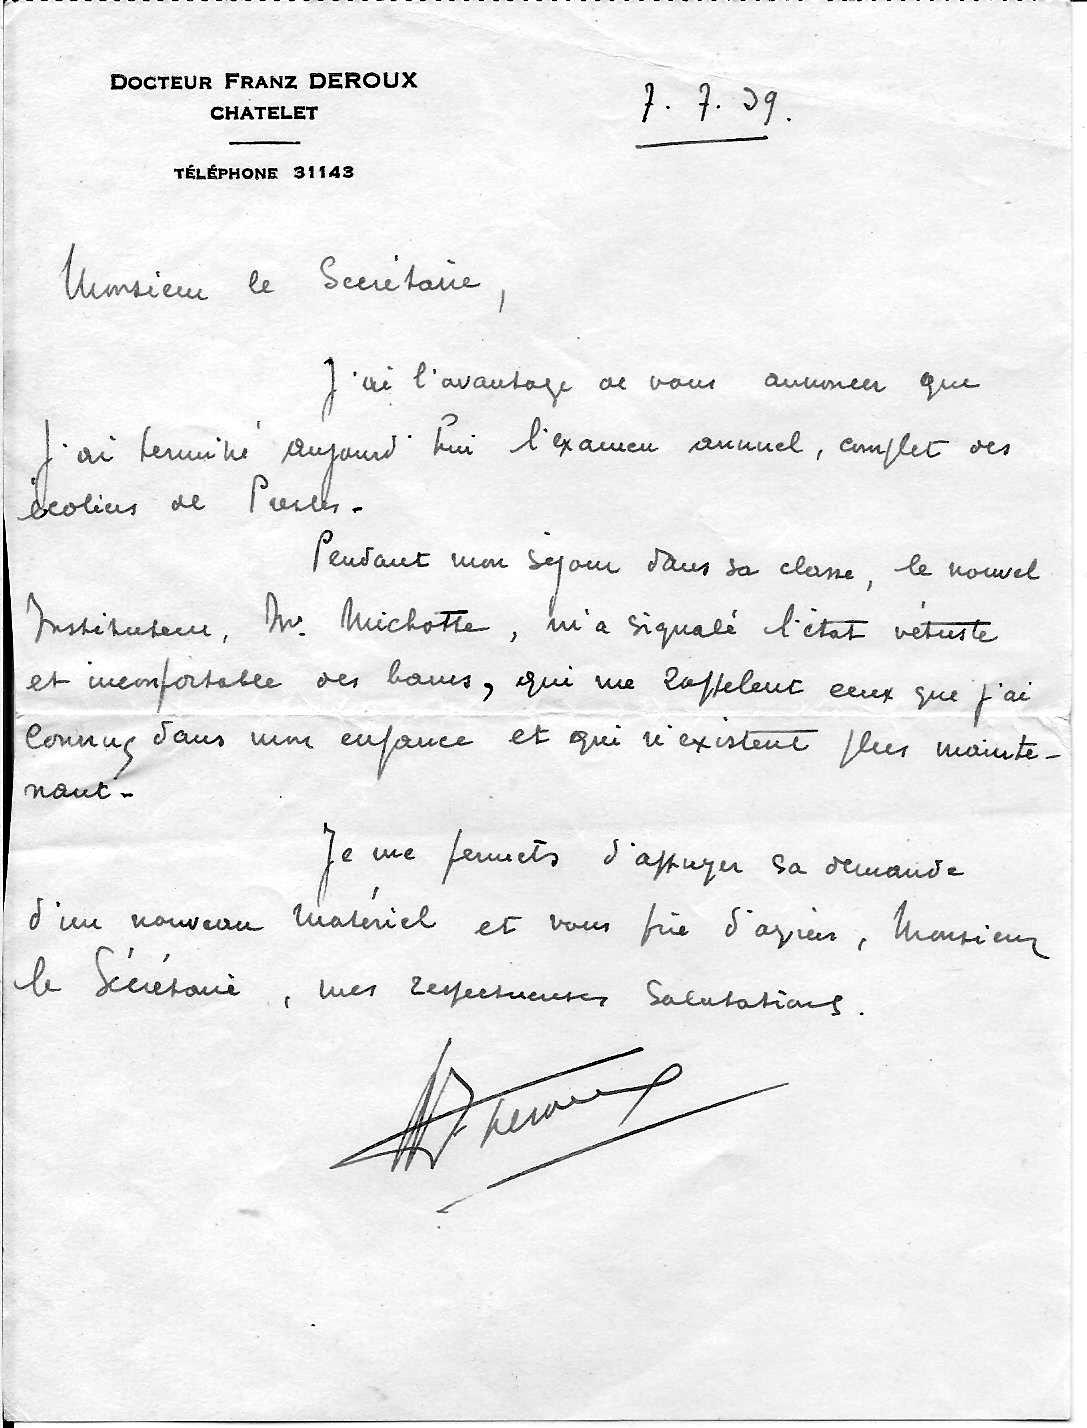 DOCTEUR FRANZ DEROUX
CHATELET
TÉLÉPHONE 31143
7. 7. 39.
Monsieur le Secrétaire,
J'ai l'avantage de vous annoncer que
j'ai terminé aujourd'hui l'examen annuel, complet des
écoliers de Presles.
Pendant mon séjour dans sa classe, le nouvel
Instituteur, Mr. Michotte, m'a signalé l'état vétuste
et inconfortable des bancs, qui me rappelent ceux que j'ai
connus dans mon enfance et qui n'existent plus mainte-
nant.
Je me permets d'appuyer sa demande
d'un nouveau matériel et vous prie d'agréer, Monsieur
le Sécrétaire, mes respectueuses salutations.
Deroux